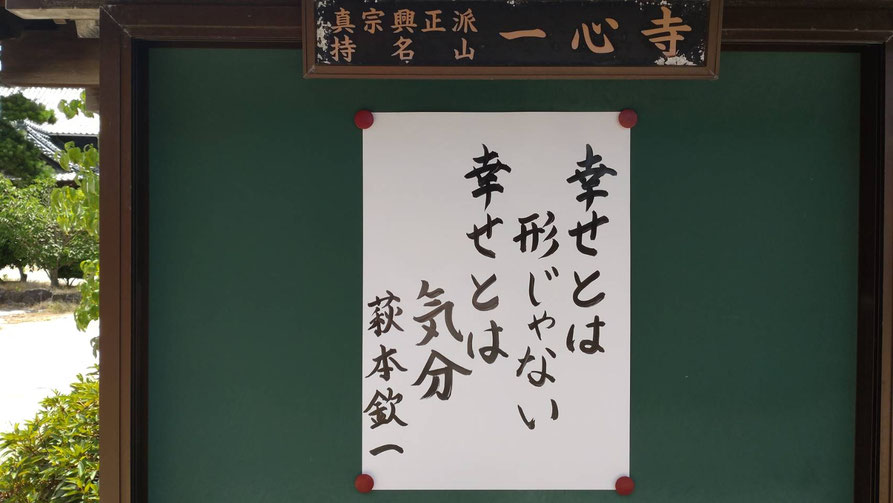 真宗興正派
持名山
一心寺
幸せとは
形じゃない
幸せとは
気分
萩本欽一